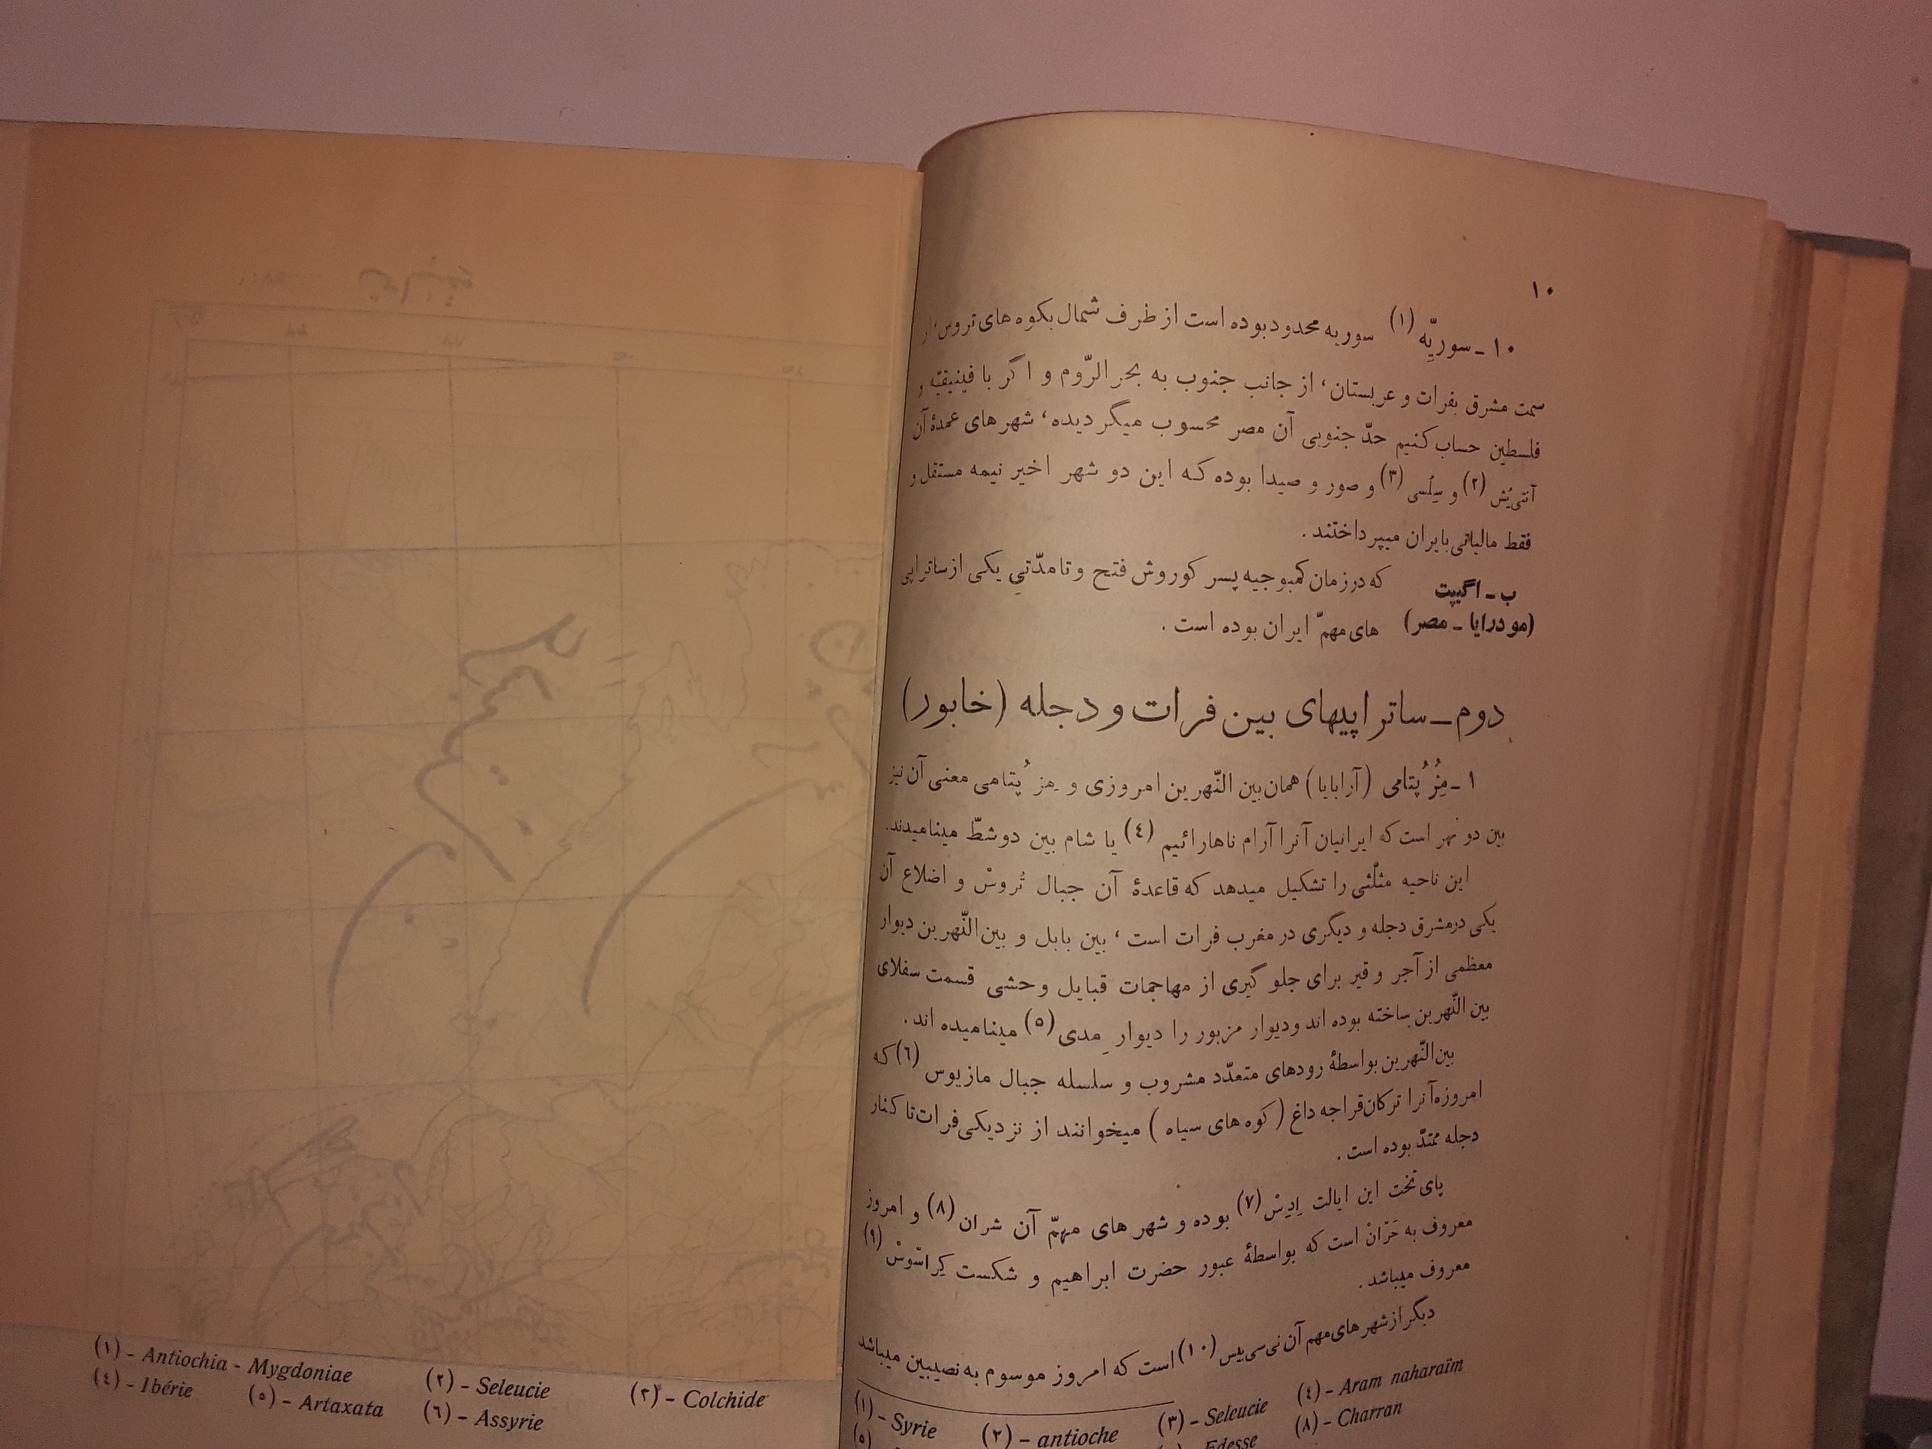 ۱۰
۱۰ـ سوریّه (۱) سوریه محدود بوده است از طرف شمال بکوه های تروس، از
سمت مشرق بفرات و عربستان، از جانب جنوب به بحر الرّوم و اگر با فینیقیّه و
فلسطین حساب کنیم حدّ جنوبی آن مصر محسوب میگردیده، شهر های عمدهٔ آن
آنتی‌یُش (۲) و سِلُسی (۳) و صور و صیدا بوده که این دو شهر اخیر نیمه مستقل و
فقط مالیاتی بایران میپرداختند.
ب ـ اگیپت که در زمان کمبوجیه پسر کوروش فتح و تا مدّتی یکی از ساتراپی
(مودرایا ـ مصر) های مهمّ ایران بوده است.
دوم ـ ساتراپیهای بین فرات و دجله (خابور)
۱ـ مِزُ پُتامی (آرابایا) همان بین النّهرین امروزی و مِز پُتامی معنی آن نیز
بین دو نهر است که ایرانیان آنرا آرام ناهارائیم (٤) یا شام بین دو شطّ مینامیدند.
این ناحیه مثلّثی را تشکیل میدهد که قاعدهٔ آن جبال تُروسْ و اضلاع آن
یکی در مشرق دجله و دیگری در مغرب فرات است، بین بابل و بین النّهرین دیوار
معظمی از آجر و قیر برای جلو گیری از مهاجمات قبایل وحشی قسمت سفلای
بین النّهرین ساخته بوده اند و دیوار مزبور را دیوار مِدی (٥) مینامیده اند.
بین النّهرین بواسطهٔ رودهای متعدّد مشروب و سلسله جبال مازیوس (٦) که
امروزه آنرا ترکان قراجه داغ (کوه های سیاه) میخوانند از نزدیکی فرات تا کنار
دجله ممتدّ بوده است.
پای تخت این ایالت اِدِسْ (۷) بوده و شهر های مهمّ آن شران (۸) و امروز
معروف به حَرّانْ است که بواسطهٔ عبور حضرت ابراهیم و شکست کِراسّوسْ (۹)
معروف میباشد.
دیگر از شهر های مهم آن نی‌سی‌بیس (۱۰) است که امروز موسوم به نصیبین میباشد
(۱) - Syrie (۲) - antioche (۳) - Seleucie (٤) - Aram naharaïm
(٥) Edesse (۸) - Charran
(۱) - Antiochia - Mygdoniae (۲) - Seleucie (۳) - Colchide
(٤) - Ibérie (٥) - Artaxata (٦) - Assyrie